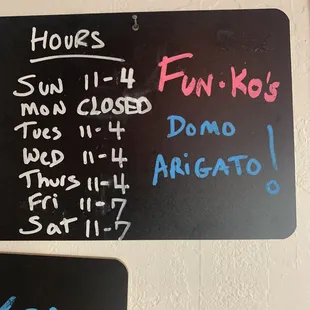 HOURS
SUN 11-4
MON CLOSED
TUES 11-4
WED 11-4
THURS 11-4
FRI 11-7
SAT 11-7
FUN·KO'S
DOMO
ARIGATO!